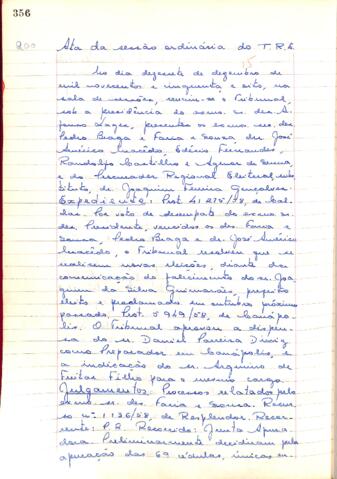 356
200
Ata da sessão ordinária do T.R.E.
15
No dia dezesete de dezembro de
mil novecentos e cinquenta e oito, na
sala de sessões, reuniu-se o Tribunal,
sob a presidência do exmo. sr. des. A-
fonso Lages, presentes os exmos. srs. des.
Pedro Braga e Faria e Sousa, drs. José
Américo Macêdo, Edésio Fernandes,
Randolfo Castilho e Agenor de Senna,
e do Procurador Regional Eleitoral subs-
tituto, dr. Joaquim Ferreira Gonçalves.
Expediente: Prot. 41275/58, de Cal-
das. Por voto de desempate do exmo. sr.
des. Presidente, vencidos os des. Faria e
Sousa, Pedro Braga e dr. José Américo
Macêdo, o Tribunal resolveu que se
realizem novas eleições, diante da
comunicação do falecimento do sr. Joa-
quim da Silva Guimarães, prefeito
eleito e proclamado em outubro próximo
passado. Prot. 5969/58, de Canápo-
lis. O Tribunal aprovou a dispen-
sa do sr. Daniel Parreira Diniz
como Preparador em Canápolis, e
a indicação do sr. Argemiro de
Freitas Filho para o mesmo cargo.
Julgamentos. Processos relatados pelo
exmo. sr. des. Faria e Sousa. Recur-
so nº 1136/58, de Resplendor. Recor-
rente: P.R. Recorrido: Junta Apura-
dora. Preliminarmente decidiram pela
apuração das 69 cédulas,